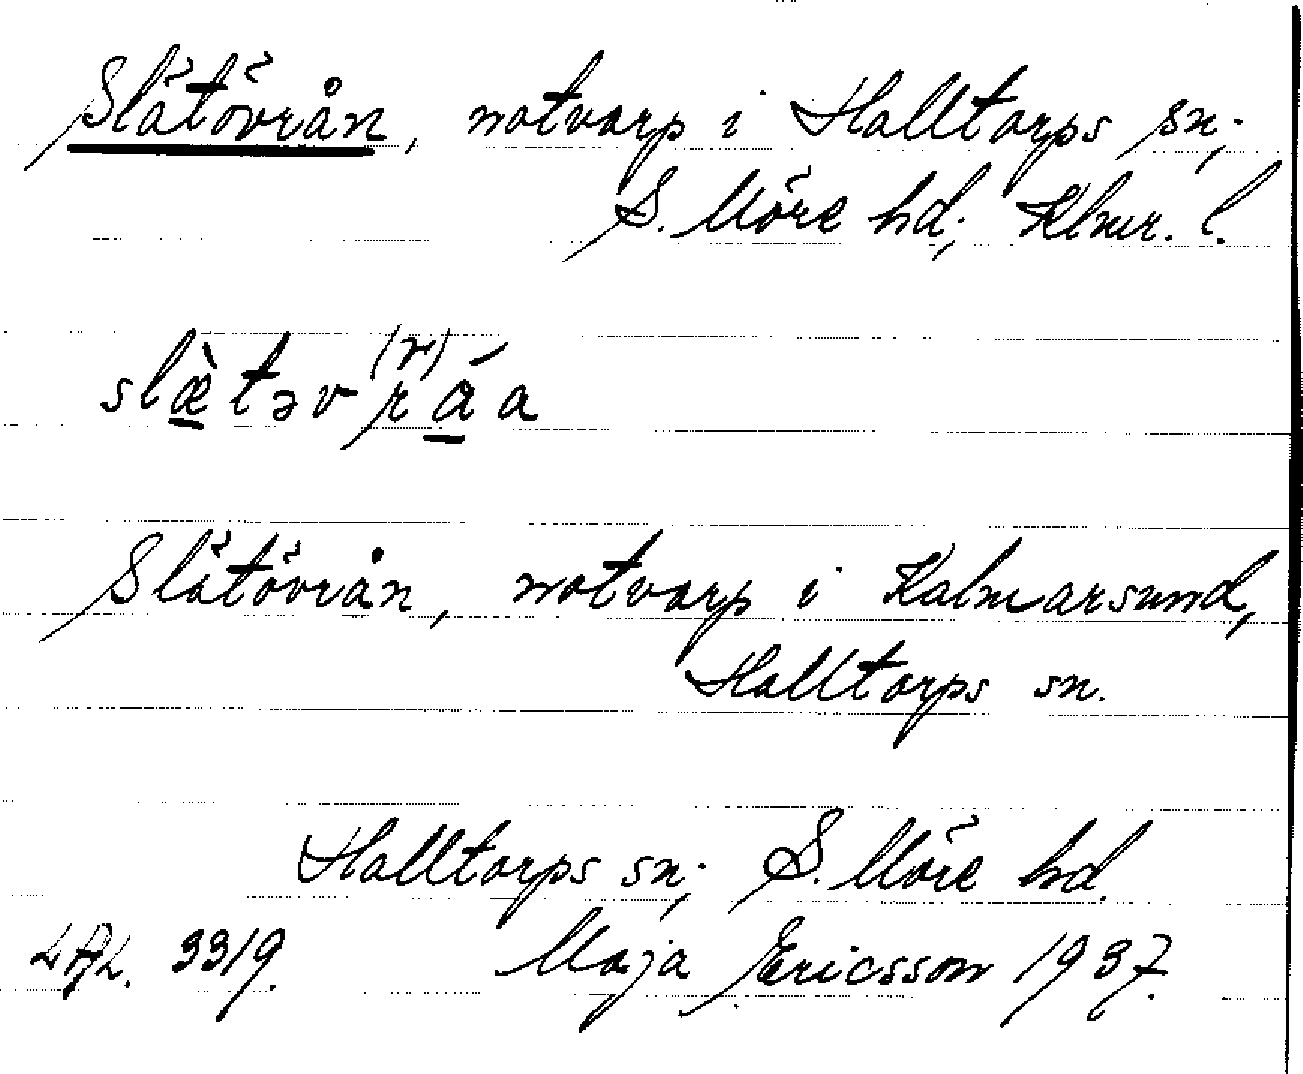 Slätövrån, notvarp i Halltorps sn;
S. Möre hd; Klmr. l.
slæ̀təv(r)ráa
Slätövrån, notvarp i Kalmarsund,
Halltorps sn.
Halltorps sn; S. Möre hd.
3319. Maja Ericsson 1937.